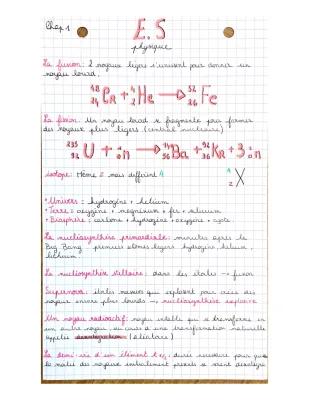 Chap 1
E.S
physique
La fusion: 2 noyaux légers s'unissent pour donner un
noyau lourd.
48 24 Cr + 4 2 He → 52 26 Fe
La fission: Un noyau lourd se fragmente pour former
des noyaux plus légers (central nucléaire)
235 92 U + 1 0 n → Ba + 36 Kr + 3 1 0 n
isotope: Même Z mais différent A
A Z X
• Univers: hydrogène + hélium
• Terre: oxygène + magnésium + fer + silicium
• Biosphère: carbone + hydrogène + oxygène + azote
La nucléosynthèse primordiale: minutes après le
Big Bang premiers élémts légers hydrogène hélium,
lithium.
La nucléosynthèse stellaire: dans les étoiles → fusion
Supernova: étoiles massives qui explosent pour créer des
noyaux encore plus lourds → nucléosynthèse explosive
Un noyau radioactif: noyau instable qui se transforme en
un autre noyau, au cours d'une transformation naturelle
appelée (aléatoire)
La demi-vie d'un élément t1/2: durée nécessaire pour que
la moitié des noyaux initialement présents se soient désintégrés